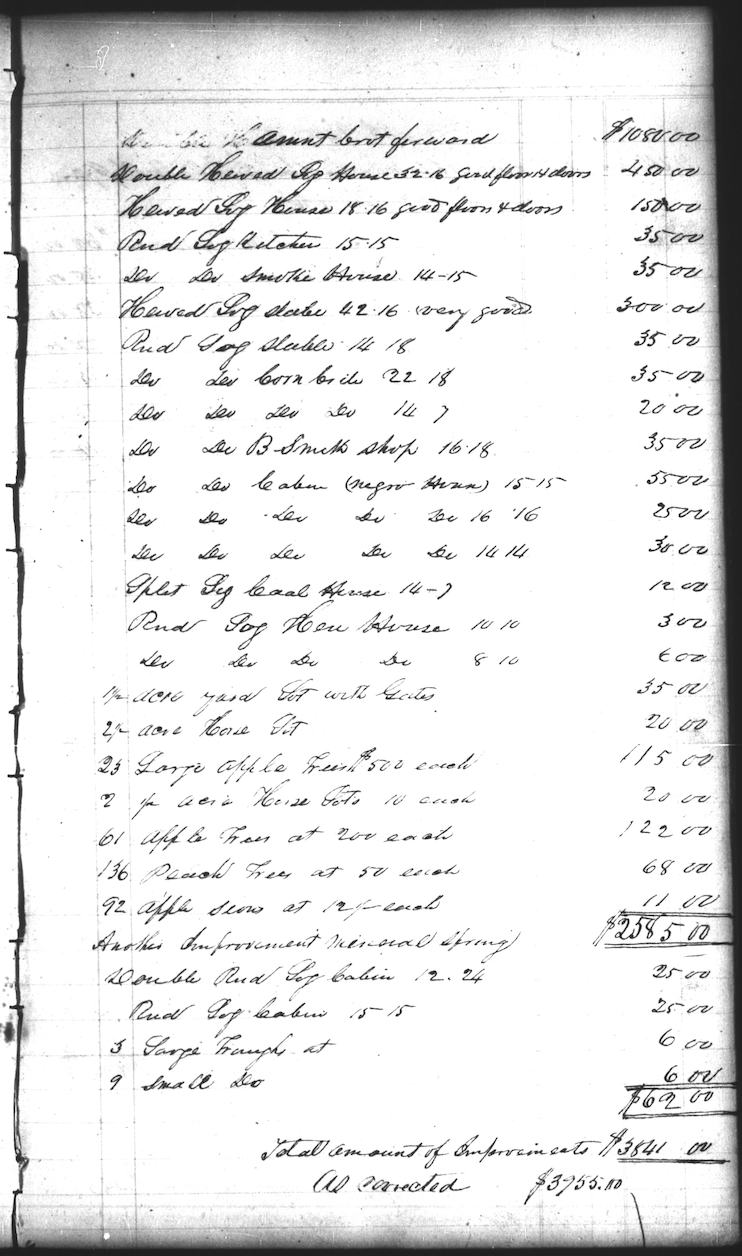 Amount brot forward $1080 00
Double Hewed Log House 32-16 good floors & doors 450 00
Hewed Log House 18-16 good floors & doors 150 00
Rnd Log Kitchen 15-15 35 00
Do Do Smoke House 14-15 35 00
Hewed Log Stable 42-16 very good 300 00
Rnd Log Stable 14 18 35 00
Do Do Corn Crib 22 18 35 00
Do Do Do Do 14 7 20 00
Do Do B Smith Shop 16-18 35 00
Do Do Cabin (negro House) 15-15 55 00
Do Do Do Do Do 16 16 25 00
Do Do Do Do Do 14 14 30 00
Split Log Coal House 14-7 12 00
Rnd Log Hen House 10 10 3 00
Do Do Do Do 8 10 00
acre yard Lot with Gates 35 00
acre Horse Lot 20 00
23 Large Apple Trees $5 00 each 115 00
2 acre Horse Lots 10 each 20 00
61 Apple Trees at 2 00 each 122 00
136 Peach Trees at 50 each 68 00
92 Apple at 12½ each 11 00
$2585 00
Another Improvement Mineral Spring
Double Rnd Log Cabin 12-24 25 00
Rnd Log Cabin 15-15 25 00
3 Large Troughs at 6 00
9 Small Do 6 00
$62 00
Total amount of Improvements $3841 00
As corrected $3955.00